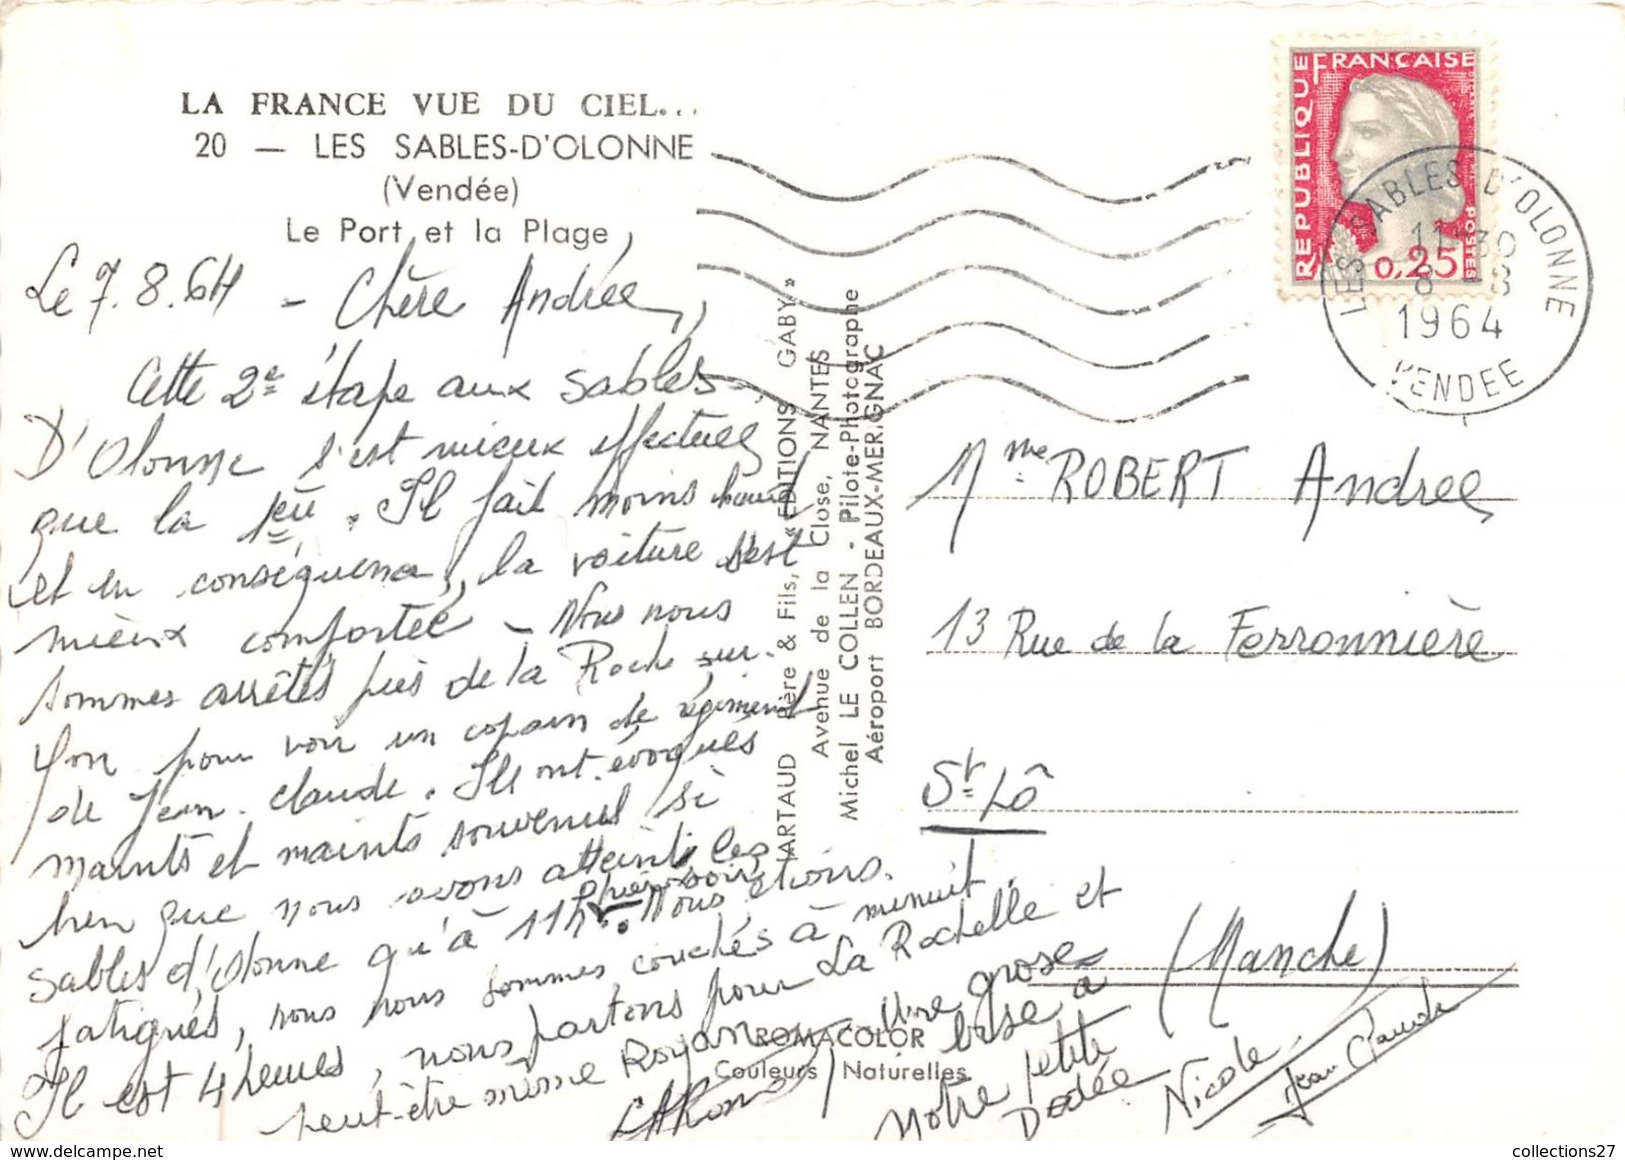 LA FRANCE VUE DU CIEL...
20 — LES SABLES-D'OLONNE
(Vendée)
Le Port et la Plage
Le 7.8.64 - Chère Andrée,
Cette 2e étape aux Sables
D'Olonne s'est mieux effectuée
que la 1eu. Il fait moins chaud
et en conséquence, la voiture s'est
mieux comportée - Nous nous
sommes arrêtés près de la Roche sur-
Yon pour voir un copain de régiment
de Jean-Claude. Ils ont évoqués
maints et maints souvenirs si
bien que nous avons atteint les
Sables d'Olonne qu'à 11h hier soir. Nous étions
fatigués, nous nous sommes couchés à minuit.
Il est 4 heures, nous partons pour La Rochelle et
peut-être même Royan - Une grosse
bise à
notre petite
Dodée
Nicole
Jean Claude
ARTAUD Père & Fils, « EDITIONS GABY »
Avenue de la Close, NANTES
Michel LE COLLEN - Pilote-Photographe
Aéroport BORDEAUX-MERIGNAC
ROMACOLOR
Couleurs Naturelles
REPUBLIQUE FRANÇAISE
POSTES
0,25
LES SABLES D'OLONNE
11-30
8 - 8
1964
VENDEE
Mme ROBERT Andrée
13 Rue de la Ferronnière
St-Lô
(Manche)
collections27